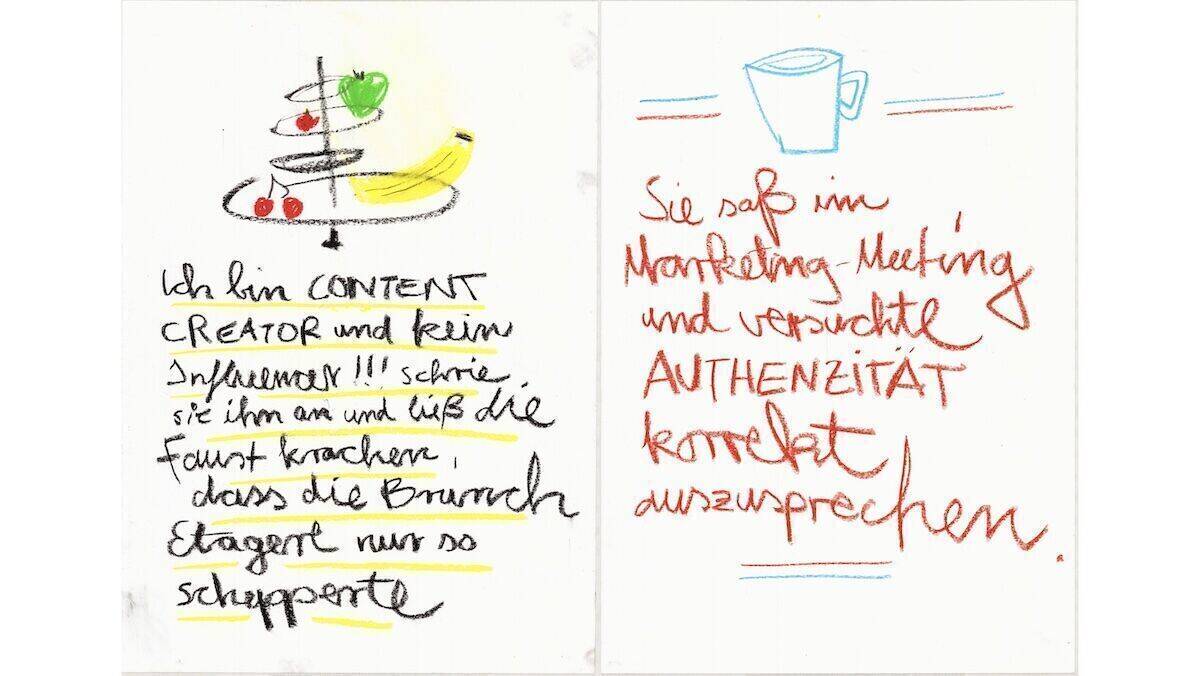 Ich bin CONTENT
CREATOR und kein
Influencer!!! schrie
sie ihm an und ließ die
Faust krachen,
dass die Brunch
Etagert nur so
schepperte
Sie saß im
Marketing-Meeting
und versuchte
AUTHENZITÄT
korrekt
auszusprechen.